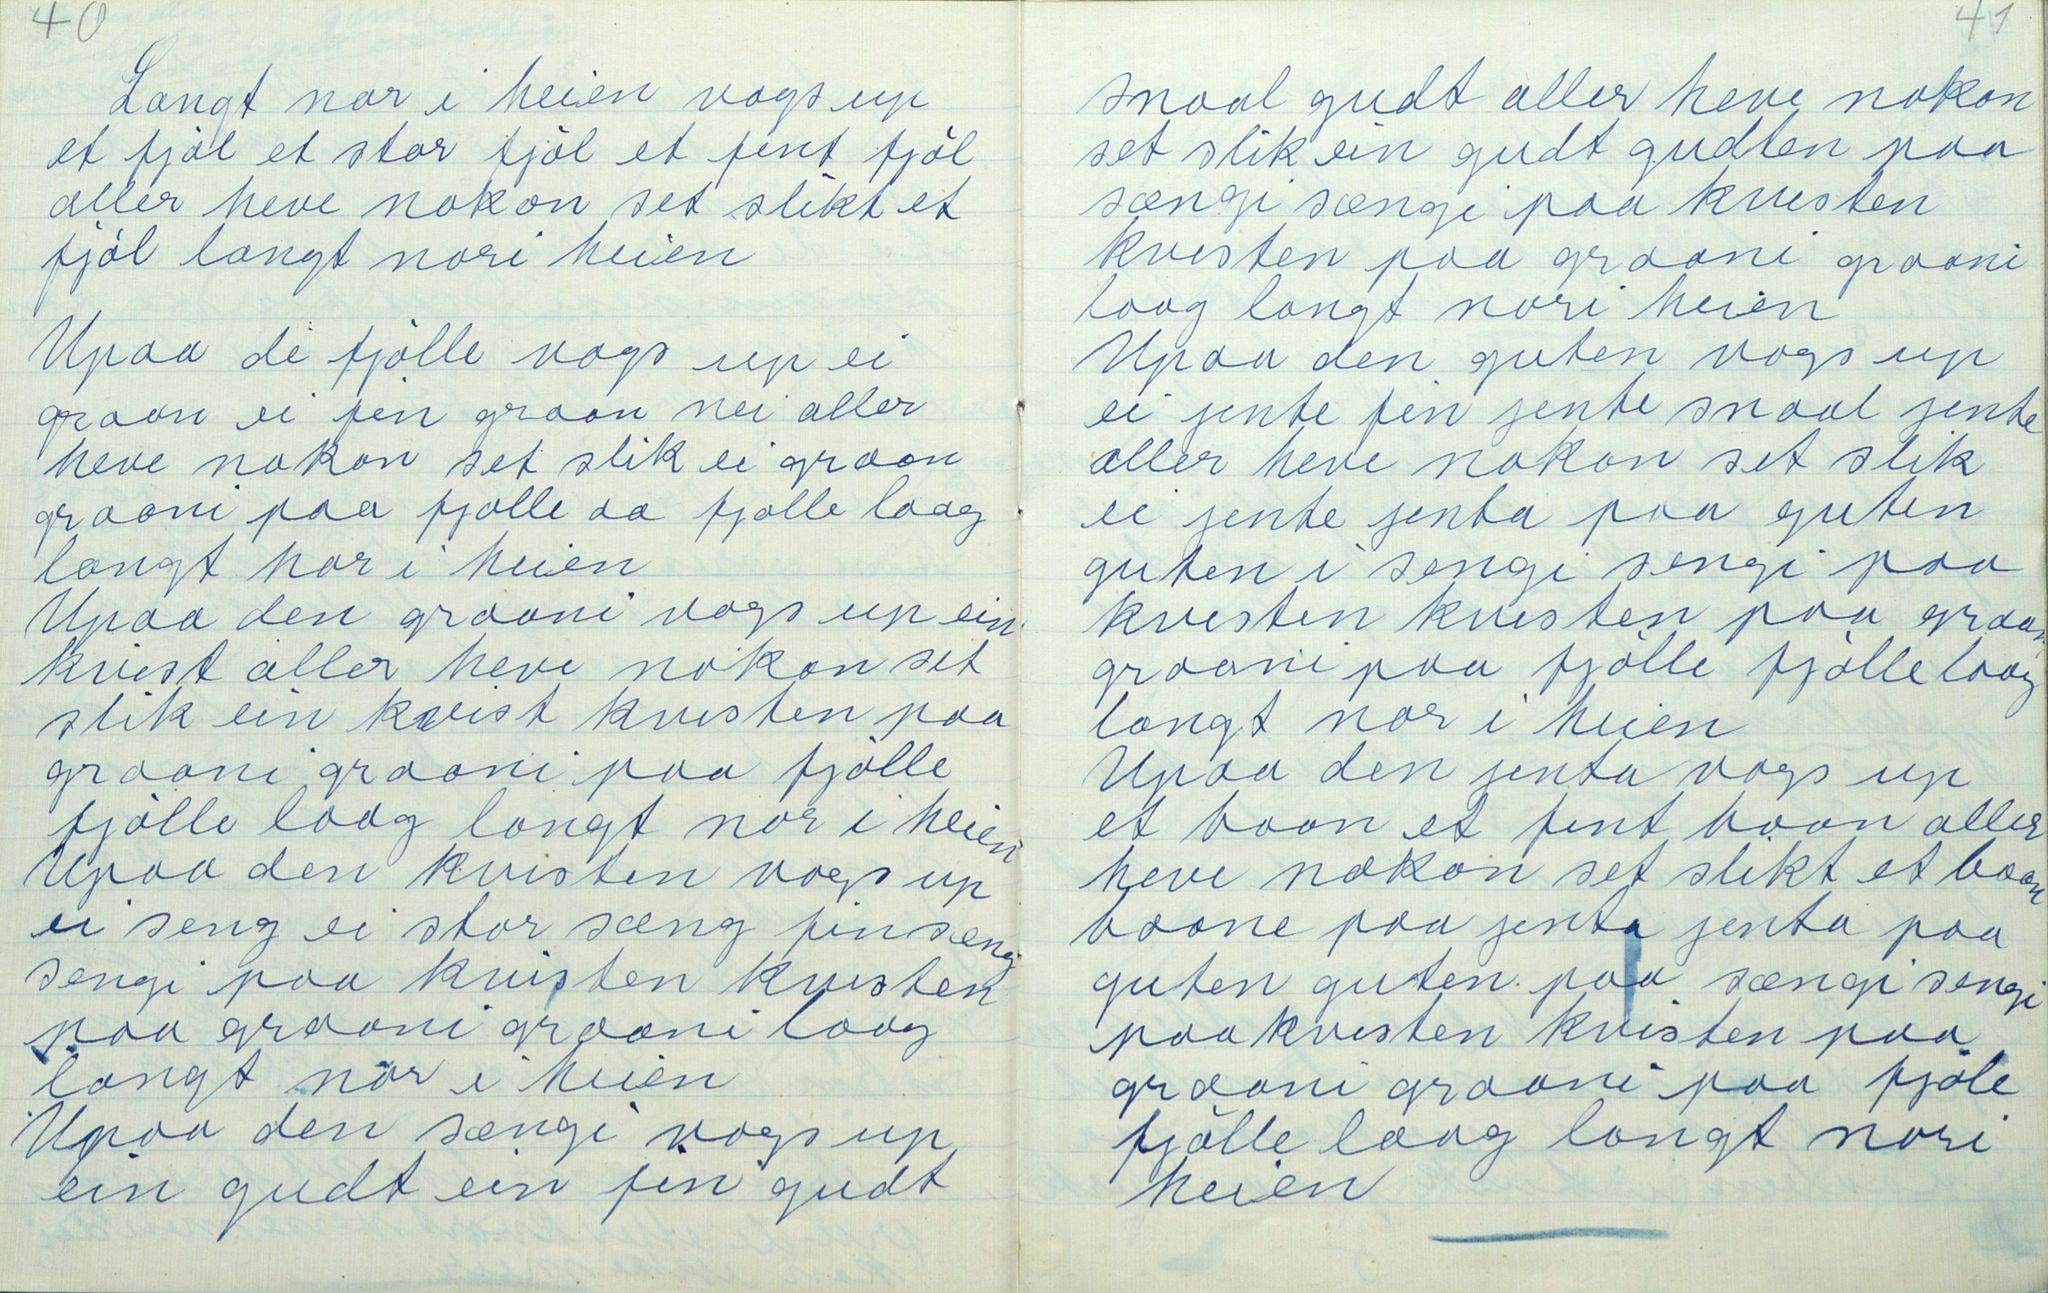 40
Langt nor i heien vogs up
et fjöl et stor fjöl et fint fjöl
aller heve nokon set slikt et
fjöl langt nori heien
Upaa de fjölle vogs up ei
graan ei fin graan nei aller
heve nokon set slik ei graan
graani paa fjölle aa fjölle laag
langt nor i heien
Upaa den graani vogs up ein
kvist aller heve nokon set
slik ein kvist kvisten paa
graani graani paa fjölle
fjölle laag langt nor i heien
Upaa den kvisten vogs up
ei seng ei stor sæng fin sæng
sengi paa kvisten kvisten
paa graani graani laag
langt nor i heien
Upaa den sængi vogs up
ein gudt ein fin gudt
41
snaal gudt aller heve nokon
set slik ein gudt gudten paa
sængi sængi paa kvisten
kvisten paa graani graani
laag langt nori heien
Upaa den guten vogs up
ei jente fin jente snaal jente
aller heve nokon set slik
ei jente jenta paa guten
guten i sengi sengi paa
kvisten kvisten paa graani
graani paa fjölle fjölle laag
langt nor i heien
Upaa den jenta vogs up
et baan et fint baan aller
heve nokon set slikt et baan
baane paa jenta jenta paa
guten guten paa sængi sengi
paa kvisten kvisten paa
graani graani paa fjöle
fjölle laag langt nori
heien